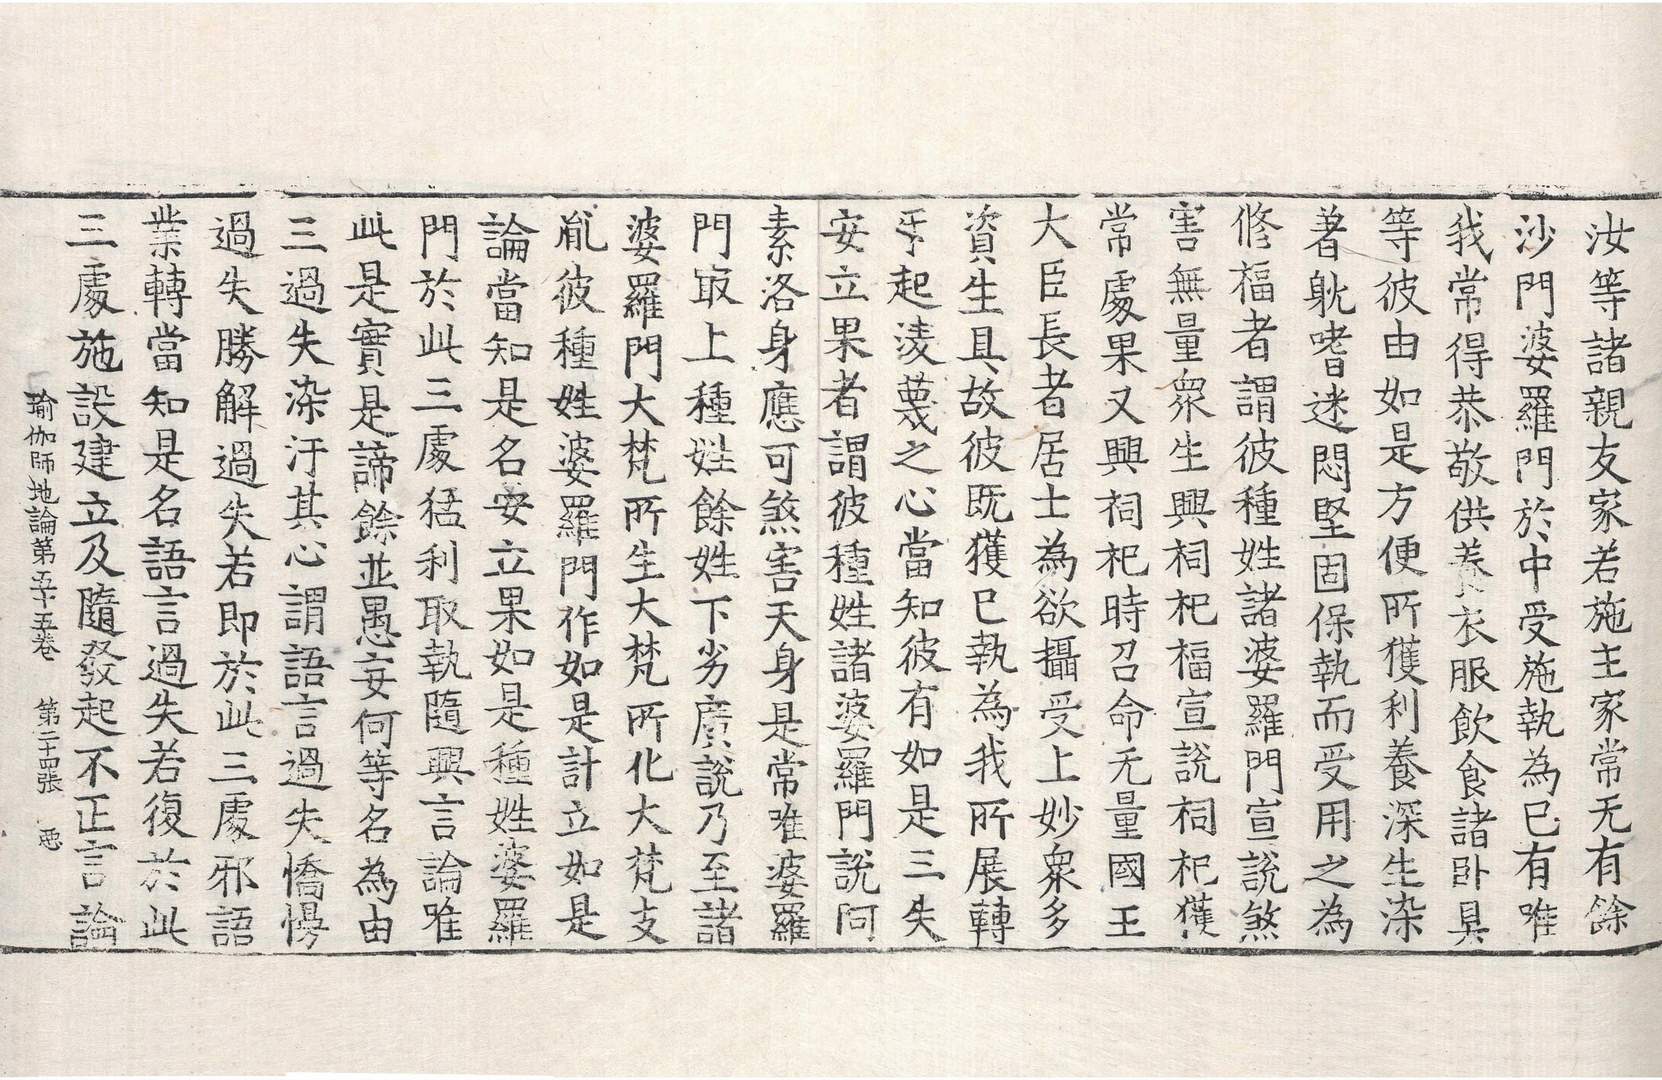 汝等諸親友家若施主家常无有餘
沙門婆羅門於中受施執為已有唯
我常得恭敬供養衣服飲食諸卧具
等彼由如是方便所獲利養深生染
著躭嗜迷悶堅固保執而受用之為
修福者謂彼種姓諸婆羅門宣說煞
害無量衆生興祠祀福宣說祠祀獲
常處果又興祠祀時召命无量國王
大臣長者居士為欲攝受上妙衆多
資生具故彼既獲已執為我所展轉
手起凌蔑之心當知彼有如是三失
安立果者謂彼種姓諸婆羅門說阿
素洛身應可煞害天身是常唯婆羅
門㝡上種姓餘姓下劣廣說乃至諸
婆羅門大梵所生大梵所化大梵支
胤彼種姓婆羅門作如是計立如是
論當知是名安立果如是種姓婆羅
門於此三處猛利取執隨興言論唯
此是實是諦餘並愚妄何等名為由
三過失染汙其心謂語言過失憍慢
過失勝解過失若即於此三處邪語
業轉當知是名語言過失若復於此
三處施設建立及隨發起不正言論
瑜伽師地論第五十五卷 第二十四張 惡